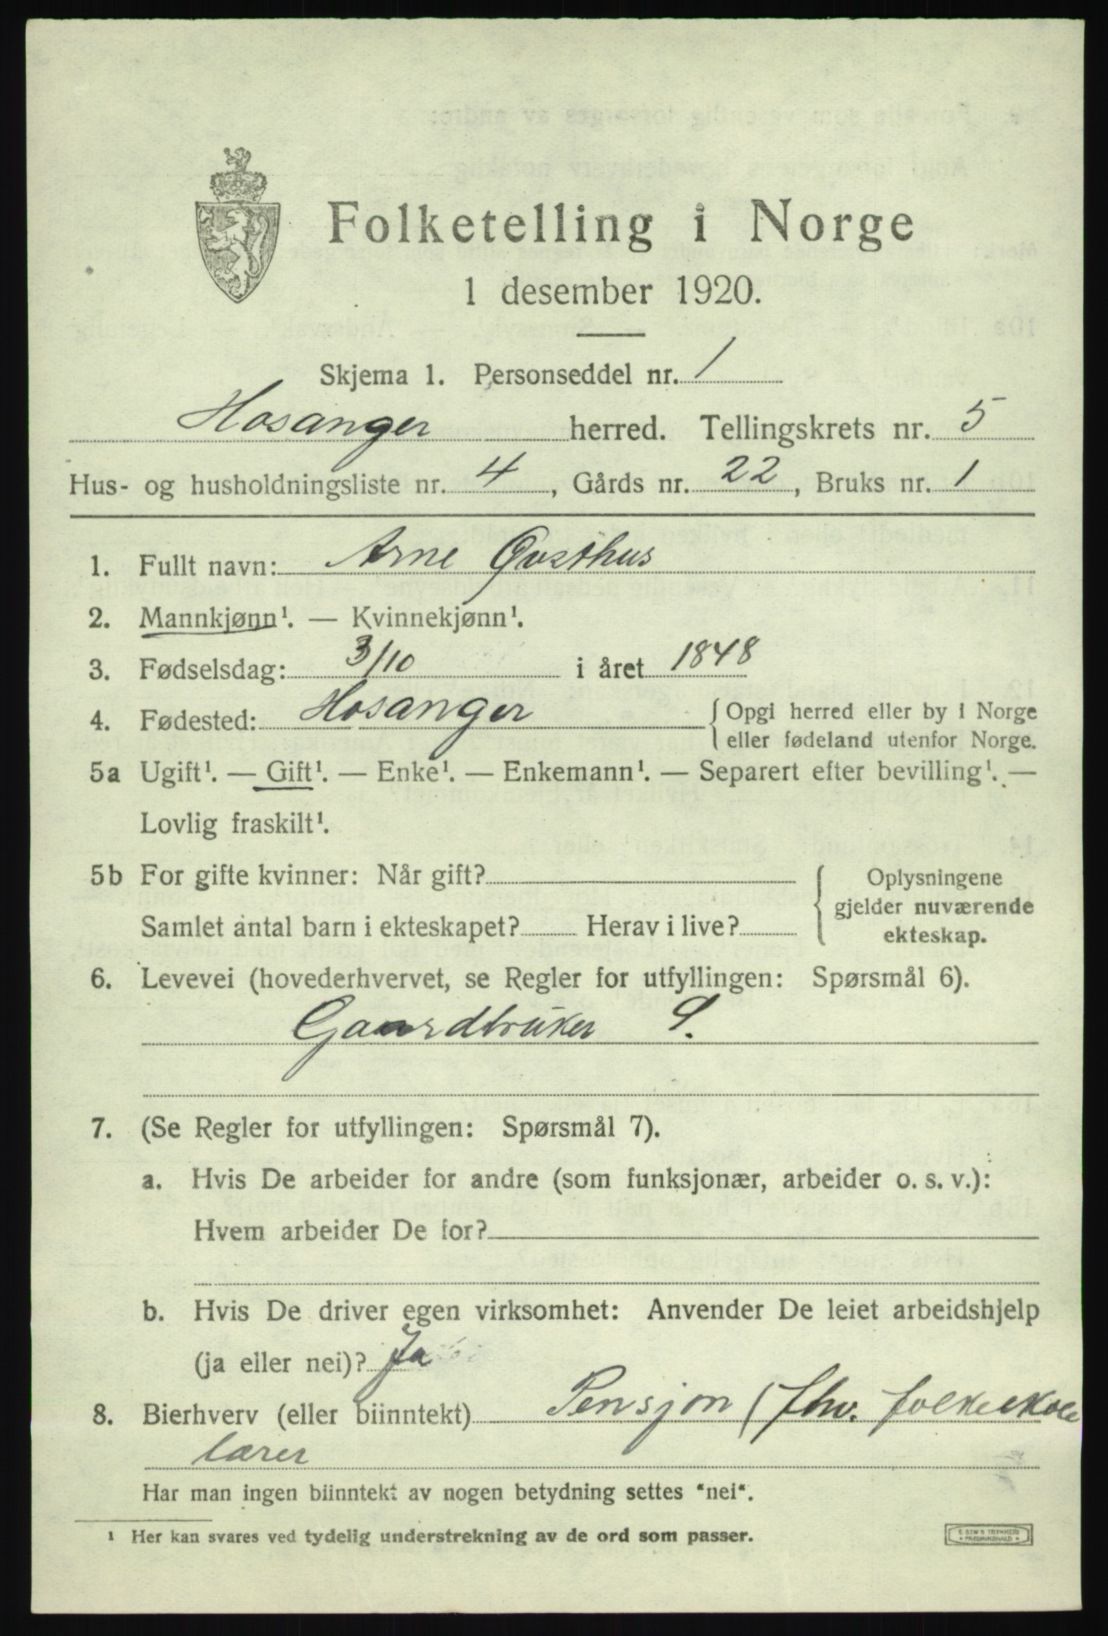 Folketelling i Norge
1 desember 1920.
Skjema 1. Personseddel nr. 1
Hosanger herred. Tellingskrets nr. 5
Hus- og husholdningsliste nr. 4, Gårds nr. 22, Bruks nr. 1
1. Fullt navn: Arne Øvsthus
2. Mannkjønn¹. — Kvinnekjønn¹.
3. Fødselsdag: 3/10 i året 1848
4. Fødested: Hosanger { Opgi herred eller by i Norge
eller fødeland utenfor Norge.
5a Ugift¹. — Gift¹. — Enke¹. — Enkemann¹. — Separert efter bevilling¹. —
Lovlig fraskilt¹.
5b For gifte kvinner: Når gift? { Oplysningene
gjelder nuværende
Samlet antal barn i ekteskapet? Herav i live?
ekteskap.
6. Levevei (hovederhvervet, se Regler for utfyllingen: Spørsmål 6).
Gaardbruker S.
7. (Se Regler for utfyllingen: Spørsmål 7).
a. Hvis De arbeider for andre (som funksjonær, arbeider o. s. v.):
Hvem arbeider De for?
b. Hvis De driver egen virksomhet: Anvender De leiet arbeidshjelp
(ja eller nei)? Ja
8. Bierhverv (eller biinntekt) Pensjon (fhv. folkeskole
lærer
Har man ingen biinntekt av nogen betydning settes "nei".
¹ Her kan svares ved tydelig understrekning av de ord som passer.